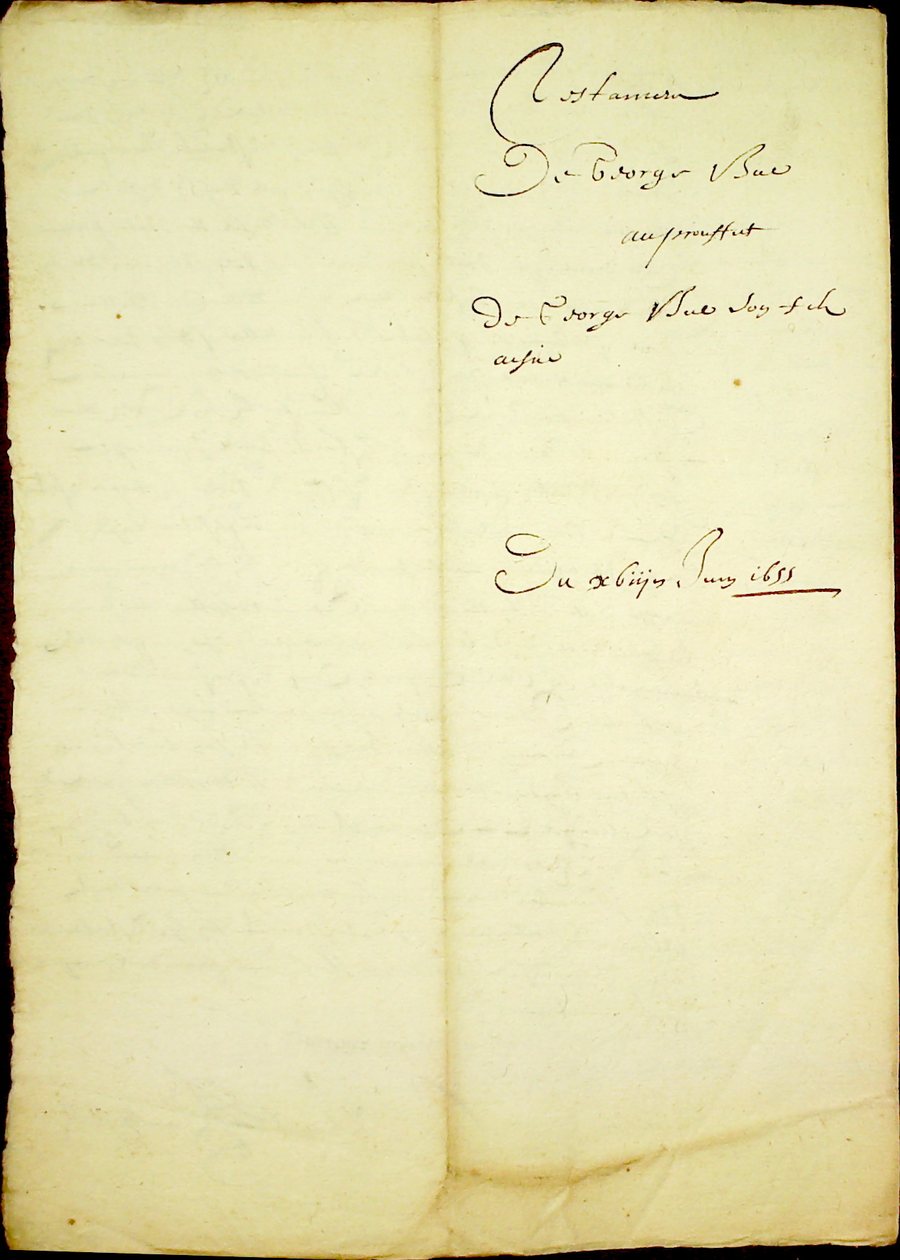 Testament
De George Bue
au prouffit
De George Bue son fils
aisné
Du xviije Juin 1655